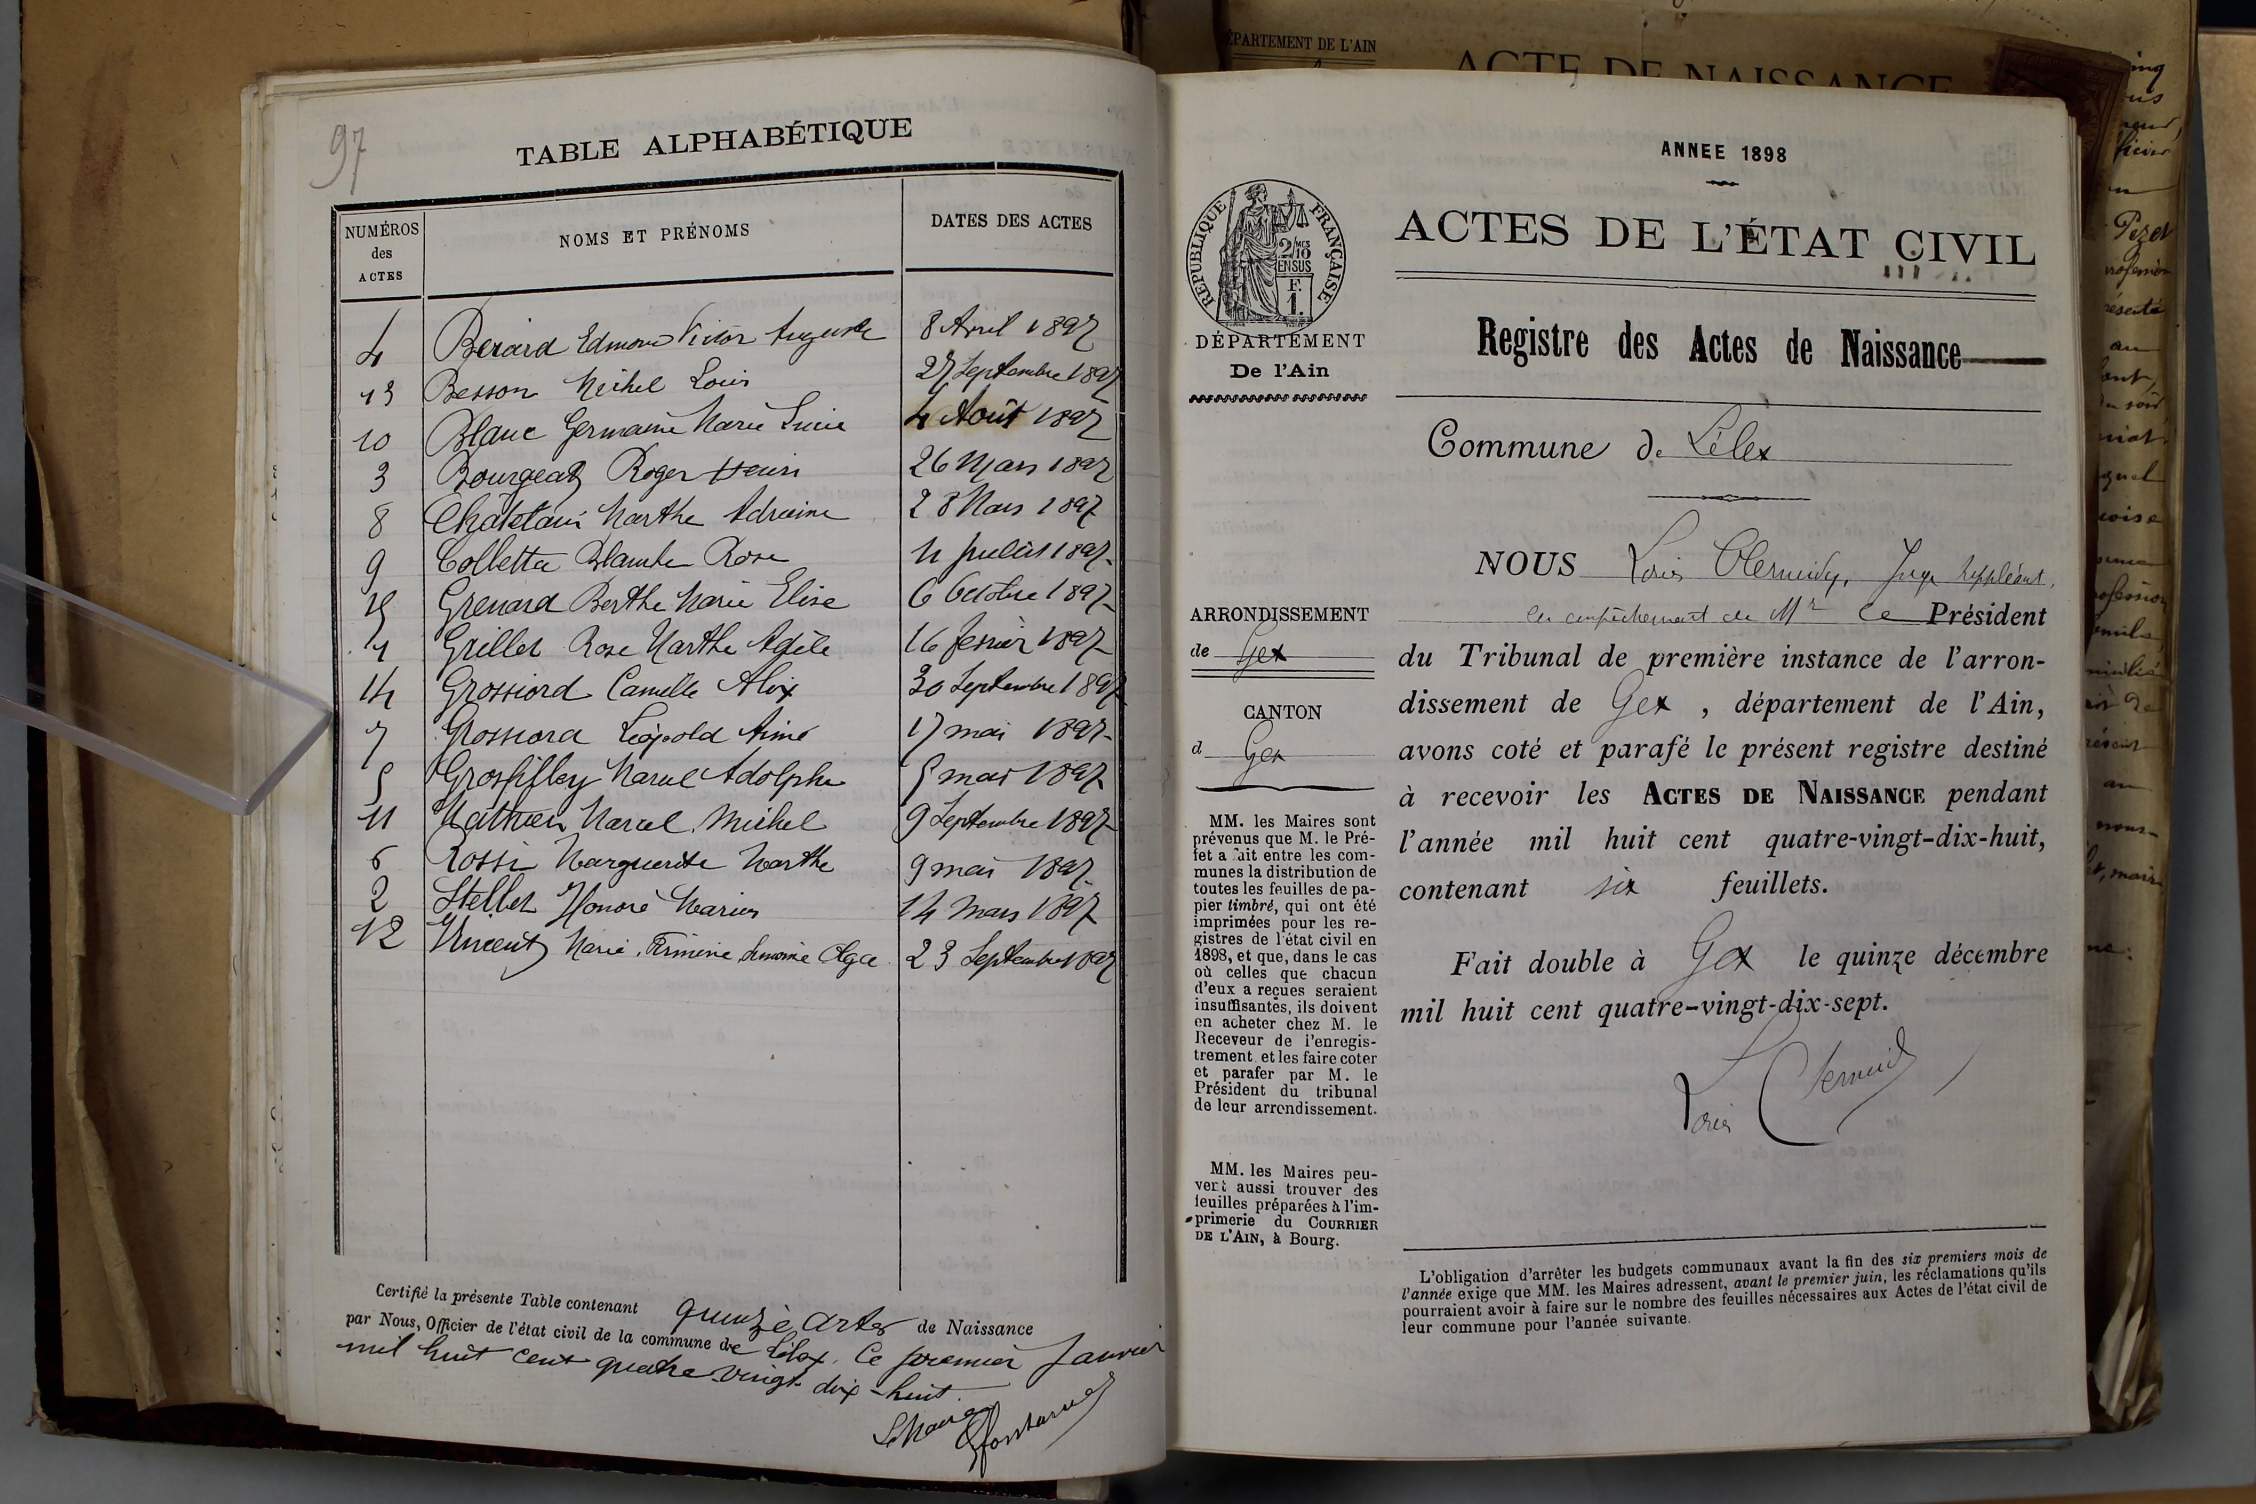 97
TABLE ALPHABÉTIQUE
NUMÉROS des ACTES
NOMS ET PRÉNOMS
DATES DES ACTES
4 Berard Edmond Victor Auguste 8 Avril 1897
13 Besson Michel Louis 27 Septembre 1897
10 Blanc Germaine Marie Lucie 4 Août 1897
3 Bourgeat Roger Henri 26 Mars 1897
8 Châtelain Marthe 28 Mars 1897
9 Colletta Blanche Rose 11 juillet 1897
15 Grenard Berthe Marie Elise 6 Octobre 1897
1 Grillet Rose Marthe Adèle 16 fevrier 1897
14 Grossiord Camille Alix 30 Septembre 1897
7 Grossiord Léopold Aimé 17 mai 1897
5 Grosfilley Marcel Adolphe 5 mai 1897
11 Mathieu Marcel Michel 9 Septembre 1897
6 Rossi Marguerite Marthe 9 mai 1897
2 Stellet Honoré Marius 14 Mars 1897
12 Vincent Marie Firmine Olga 23 Septembre 1897
Certifié la présente Table contenant quinze actes de Naissance
par Nous, Officier de l'état civil de la commune de Lélex. Ce premier Janvier
mil huit cent quatre vingt dix-huit.
Le Maire
DÉPARTEMENT DE L'AIN
ACTE DE NAISSANCE
ANNEE 1898
RÉPUBLIQUE FRANÇAISE
2/10 EN SUS
F. 1.
ACTES DE L'ÉTAT CIVIL
DÉPARTEMENT
De l'Ain
Registre des Actes de Naissance
Commune de Lélex
ARRONDISSEMENT
de Gex
CANTON
d Gex
MM. les Maires sont
prévenus que M. le Pré-
fet a fait entre les com-
munes la distribution de
toutes les feuilles de pa-
pier timbré, qui ont été
imprimées pour les re-
gistres de l'état civil en
1898, et que, dans le cas
où celles que chacun
d'eux a reçues seraient
insuffisantes, ils doivent
en acheter chez M. le
Receveur de l'enregis-
trement et les faire coter
et parafer par M. le
Président du tribunal
de leur arrondissement.
MM. les Maires peu-
vent aussi trouver des
feuilles préparées à l'im-
primerie du COURRIER
DE L'AIN, à Bourg.
NOUS Louis Juge suppléant,
en empêchement de Mr le Président
du Tribunal de première instance de l'arron-
dissement de Gex, département de l'Ain,
avons coté et parafé le présent registre destiné
à recevoir les ACTES DE NAISSANCE pendant
l'année mil huit cent quatre-vingt-dix-huit,
contenant six feuillets.
Fait double à Gex le quinze décembre
mil huit cent quatre-vingt-dix-sept.
Louis
L'obligation d'arrêter les budgets communaux avant la fin des six premiers mois de
l'année exige que MM. les Maires adressent, avant le premier juin, les réclamations qu'ils
pourraient avoir à faire sur le nombre des feuilles nécessaires aux Actes de l'état civil de
leur commune pour l'année suivante.